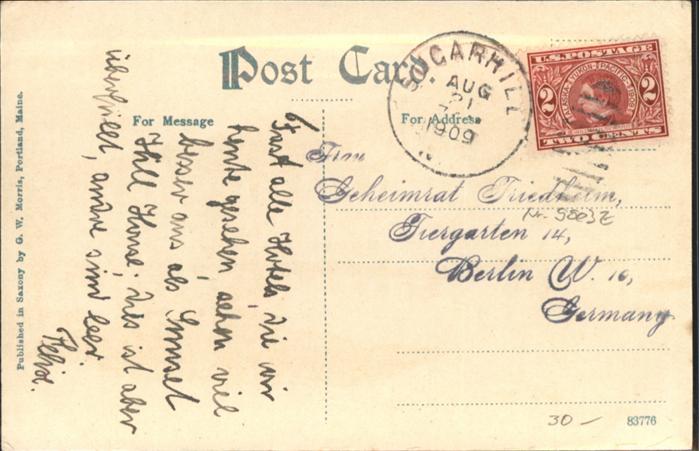 Post Card.
For Message
For Address
SUGARHILL
AUG
21
1909
U.S. POSTAGE
ALASKA-YUKON-PACIFIC 1909
2 2
TWO CENTS
Fast alle Hotels die wir
heute gesehen, sehen viel
besser aus als Sunset
Hill House; dies ist aber
überfüllt, andre sind leer.
Felix.
Geheimrat Friedheim,
Tiergarten 14,
Berlin W. 16,
Germany
30 —
83776
Published in Saxony by G. W. Morris, Portland, Maine.